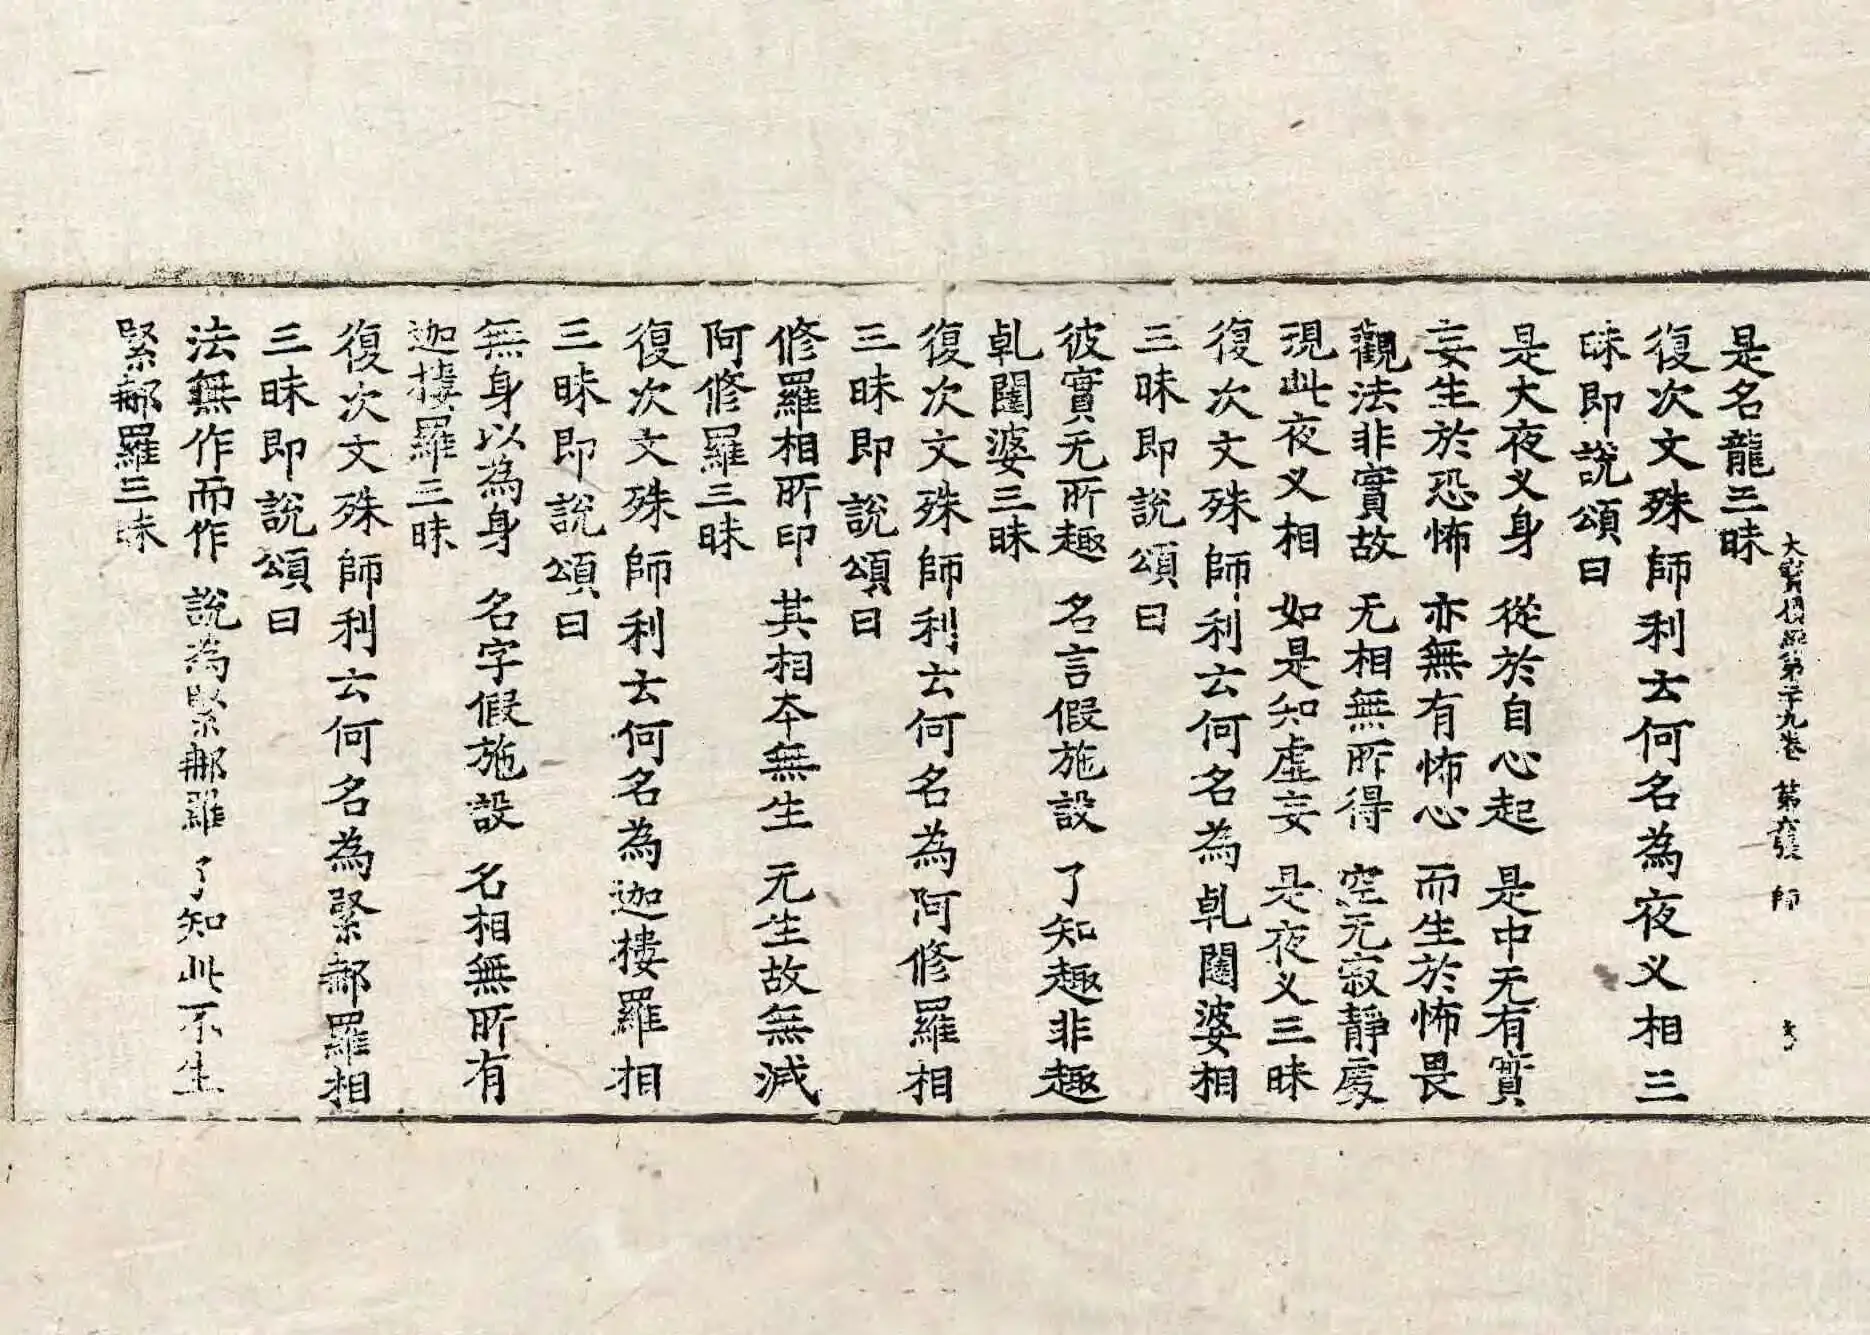 大寶積經第二十九卷 第六張 師
是名龍三昧
復次文殊師利云何名為夜叉相三
昧即說頌曰
是大夜叉身 從於自心起 是中无有實
妄生於恐怖 亦無有怖心 而生於怖畏
觀法非實故 无相無所得 空无寂靜處
現此夜叉相 如是知虛妄 是夜叉三昧
復次文殊師利云何名為乹闥婆相
三昧即說頌曰
彼實无所趣 名言假施設 了知趣非趣
乹闥婆三昧
復次文殊師利云何名為阿修羅相
三昧即說頌曰
修羅相所印 其相本無生 元生故無減
阿修羅三昧
復次文殊師利云何名為迦樓羅相
三昧即說頌曰
無身以為身 名字假施設 名相無所有
迦樓羅三昧
復次文殊師利云何名為緊那羅相
三昧即說頌曰
法無作而作 說為緊那羅 了知此不生
緊那羅三昧